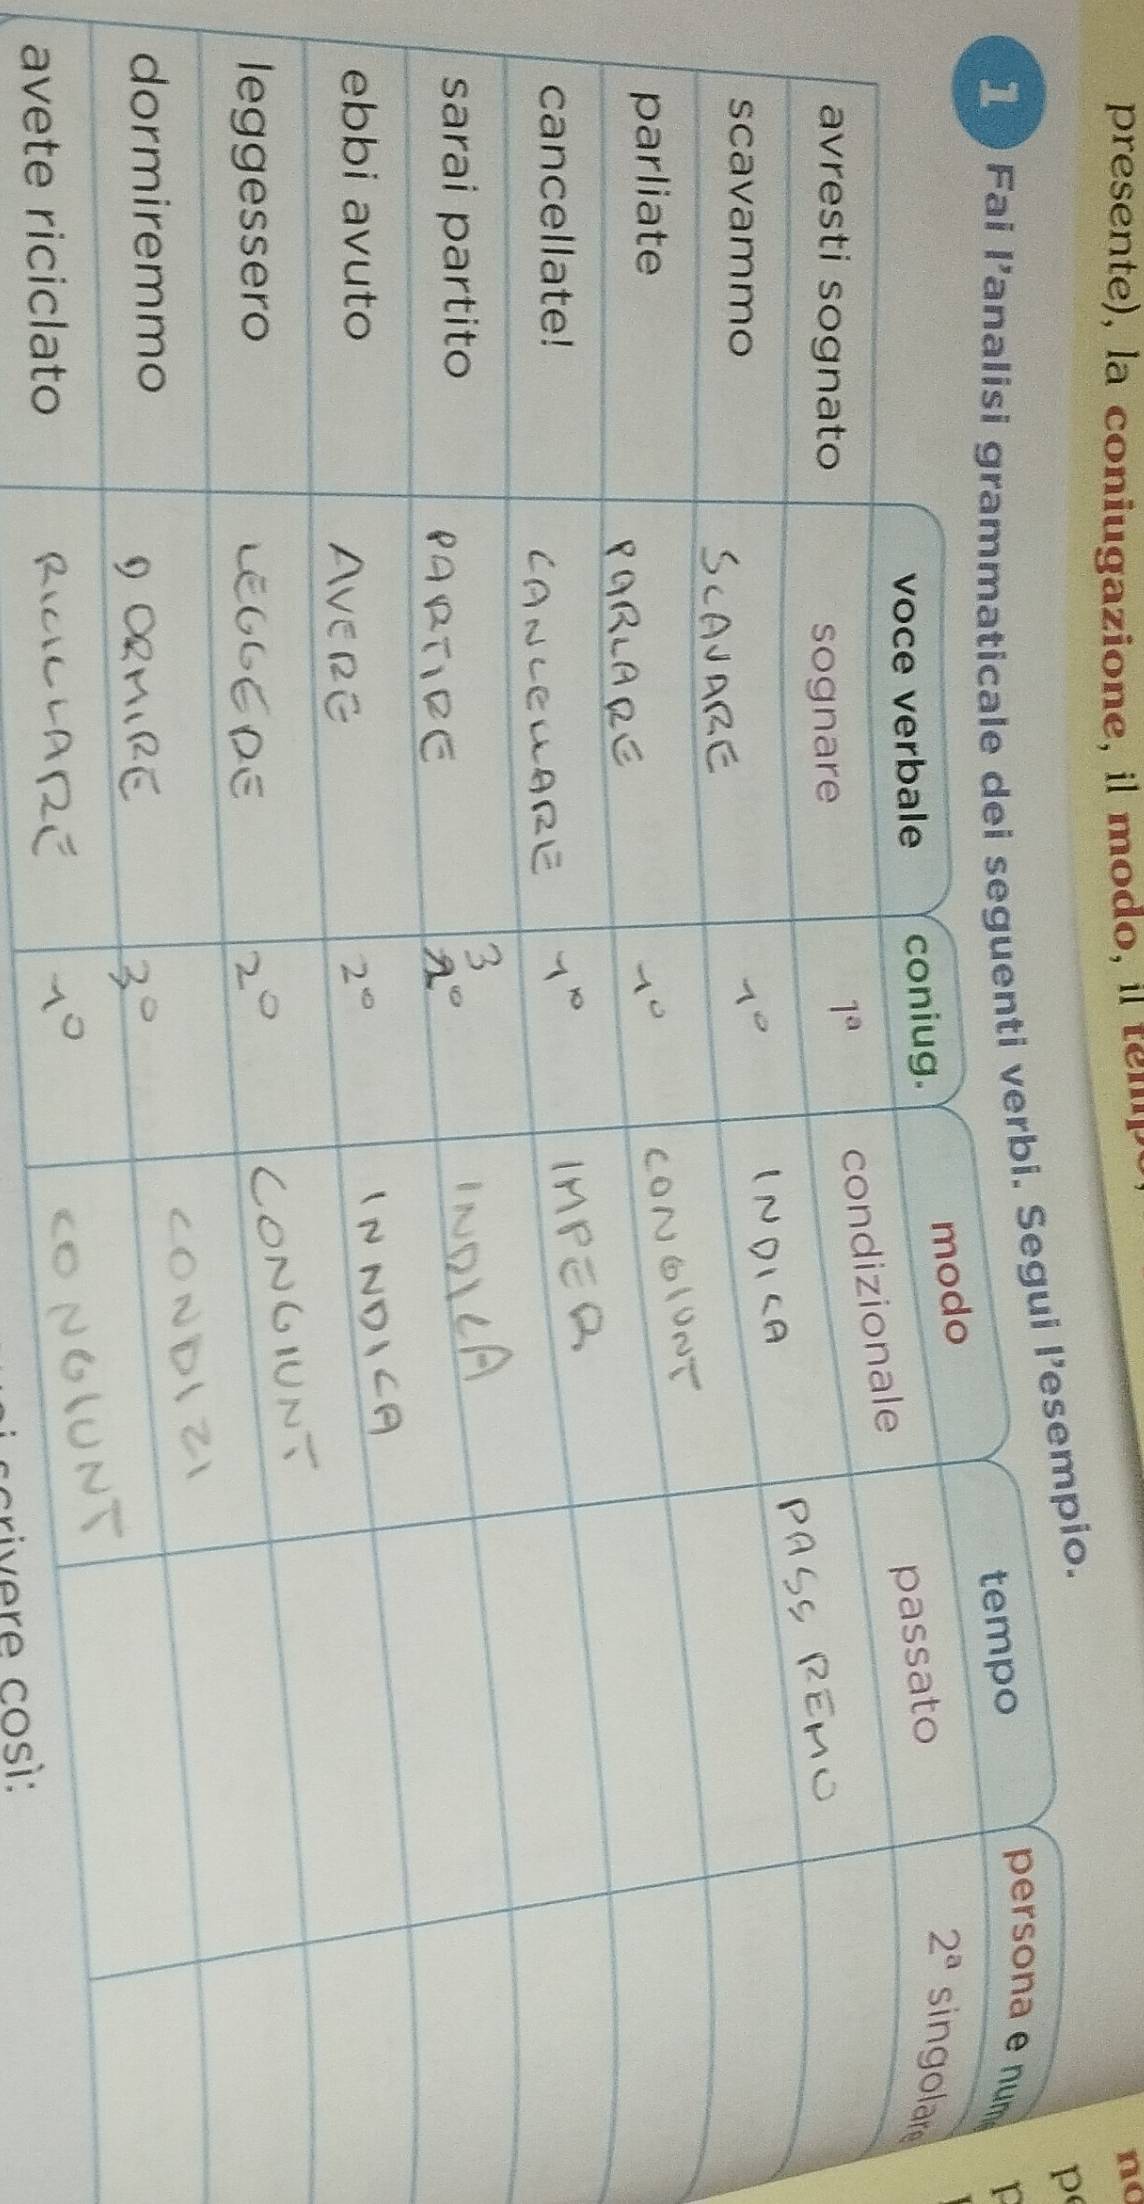 presente), la coniugazione, il modo, il
1 Fai l'analisi grammaticale dei seguenti verbi. Segui l'esempio.
voce verbale coniug. modo tempo persona e
avresti sognato sognare 1ª condizionale passato 2ª singolare
scavammo SCAVARE 1° INDICA PASS REMO
parliate PARLARE 1° CONGIUNT
cancellate! CANCELLARE 1° IMPER
sarai partito PARTIRE 3° INDICA
ebbi avuto AVERE 2° INNDICA
leggessero LEGGERE 2° CONGIUNT
dormiremmo DORMIRE 3° CONDIZI
avete riciclato RICICLARE 1° CONGIUNT
scrivere così: